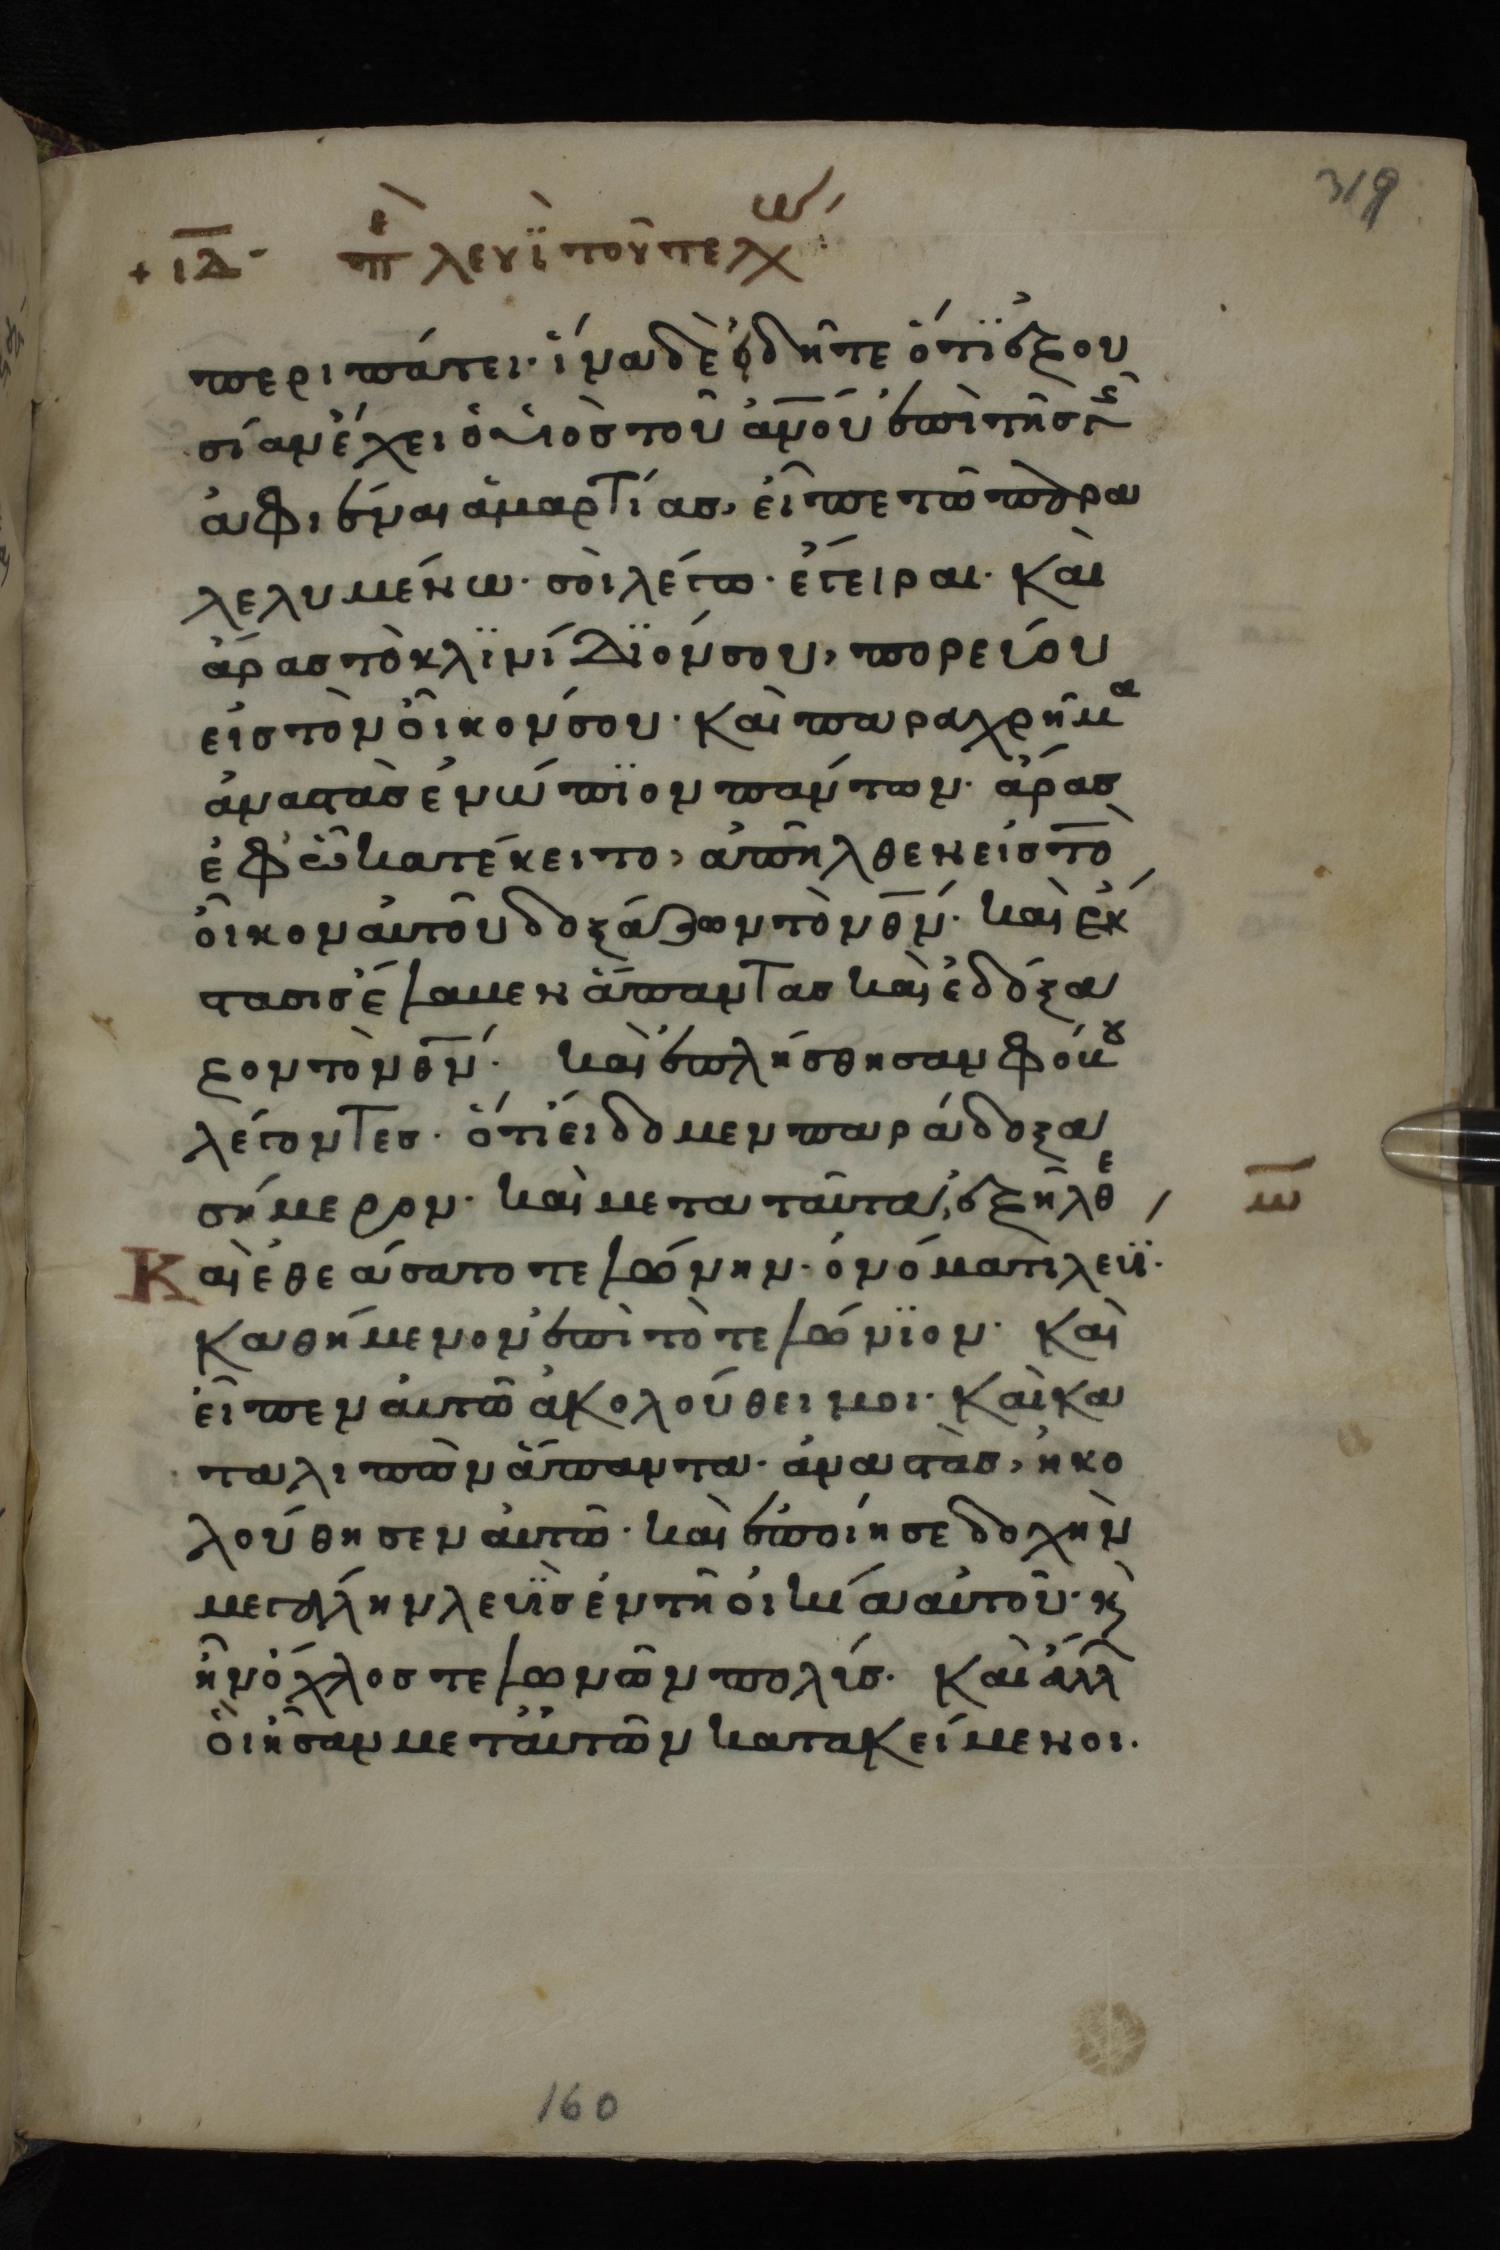 319
+ ιδ· πε λευῒ τοῦ τελω
περιπάτει· ἵνα δὲ ἰδῆτε ὅτι ἐξου
σίαν ἔχει ὁ υἱὸς τοῦ ἀνου ἐπὶ τῆς γῆς
ἀφιέναι ἁμαρτίας, εἶπε τῶ παρα
λελυμένω· σοὶ λέγω· ἔγειραι· καὶ
ἄρας τὸ κλϊνίδϊόν σου, πορεύου
εἰς τὸν οἶκον σου· καὶ παραχρῆμα
ἀναστὰς ἐνώπϊον πάντων· ἄρας
ἐφ ᾧ κατέκειτο, ἀπῆλθεν εἰς τὸ
οἶκον αὐτοῦ δοξάζων τὸν θν· καὶ ἔκ
στασις ἔλαμεν ἅπαντας καὶ ἐδόξα
ζον τὸν θν· καὶ ἐπλήσθησαν φόβου
λέγοντες· ὅτι εἴδομεν παράδοξα
σήμερον· καὶ μετα ταῦτα, ἐξῆλθε
Καὶ ἐθεάσατο τελώνην· ὀνόματι λευῒ·
καθήμενον ἐπὶ τὸ τελώνϊον· καὶ
εἶπεν αὐτῶ ἀκολούθει μοι· καὶ κα
ταλιπὼν ἅπαντα· ἀναστὰς, ἠκο
λούθησεν αὐτῶ· καὶ ἐποίησε δοχὴν
μεγάλην λευῒς ἐν τῆ οἰκία αὐτοῦ· κ
ἦν ὄχλος τελωνῶν πολύς· καὶ ἄλλ
οἳ ἦσαν μετ αὐτῶν κατακείμενοι·
160